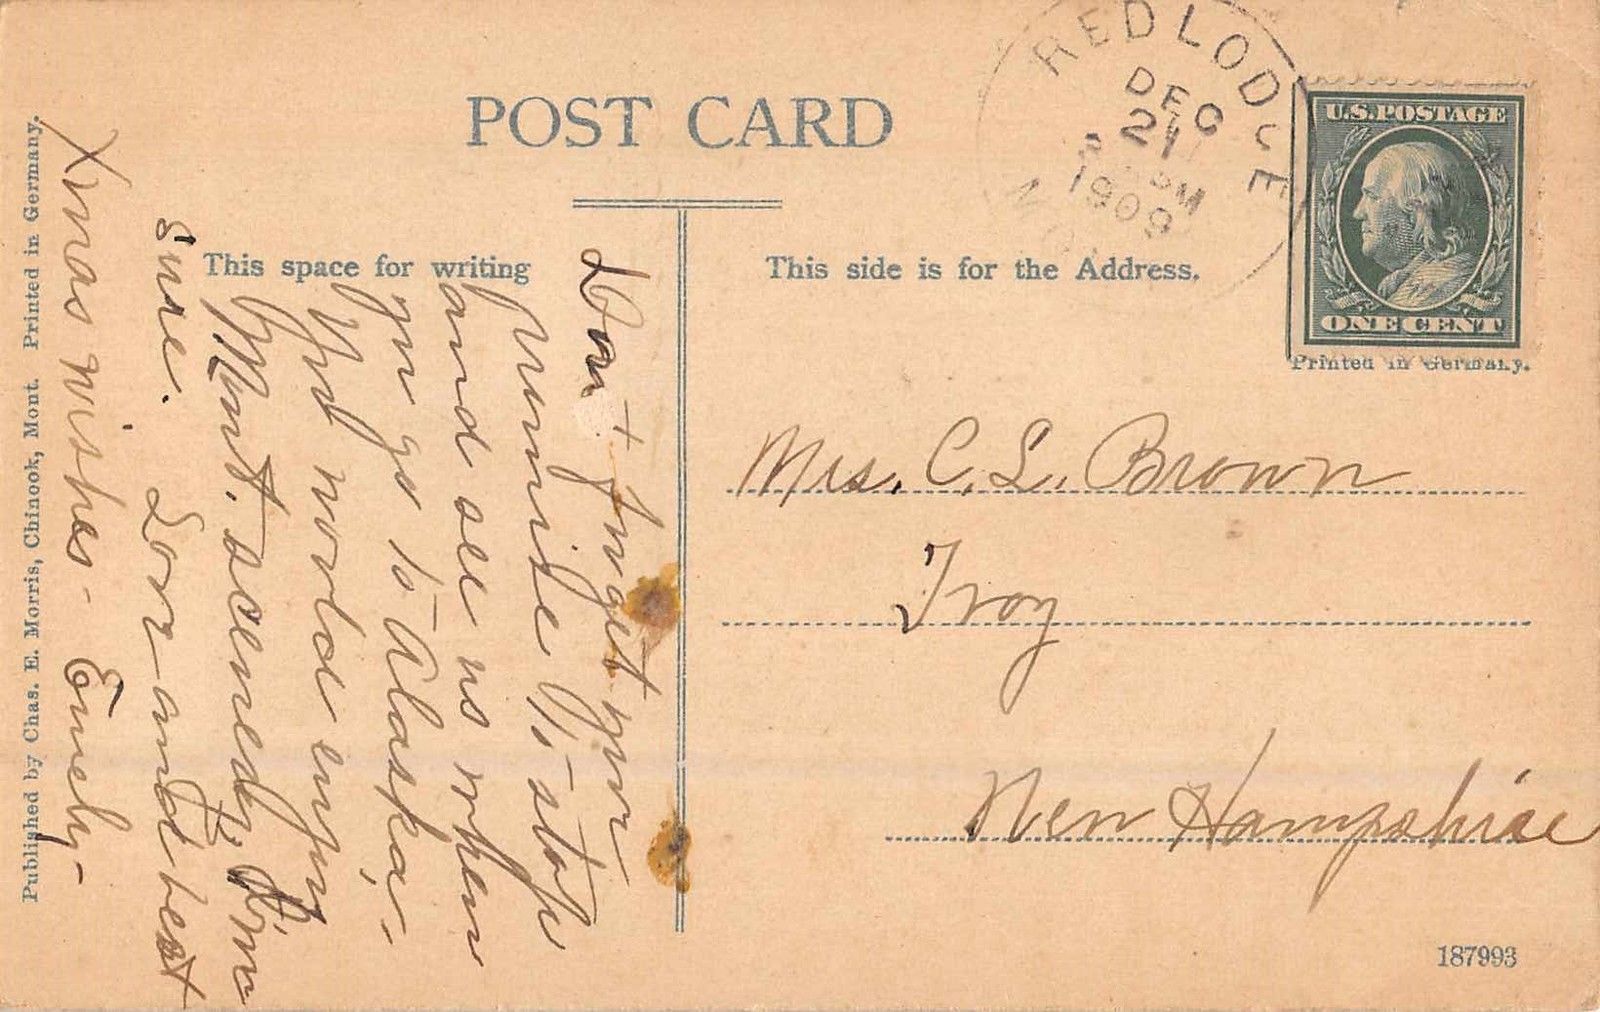 POST CARD
RED LODGE
DEC
21
PM
1909
MON
U.S. POSTAGE
ONE CENT
Printed in Germany.
This space for writing
This side is for the Address.
Don't forget your
promise to stop
and see us when
you go to Alaska.-
You would enjoy
Mont. scenery, I'm
sure. Love and best
Xmas wishes - Emely-
Mrs. C. L. Brown
Troy
New Hampshire
Published by Chas. E. Morris, Chinook, Mont. Printed in Germany.
187993